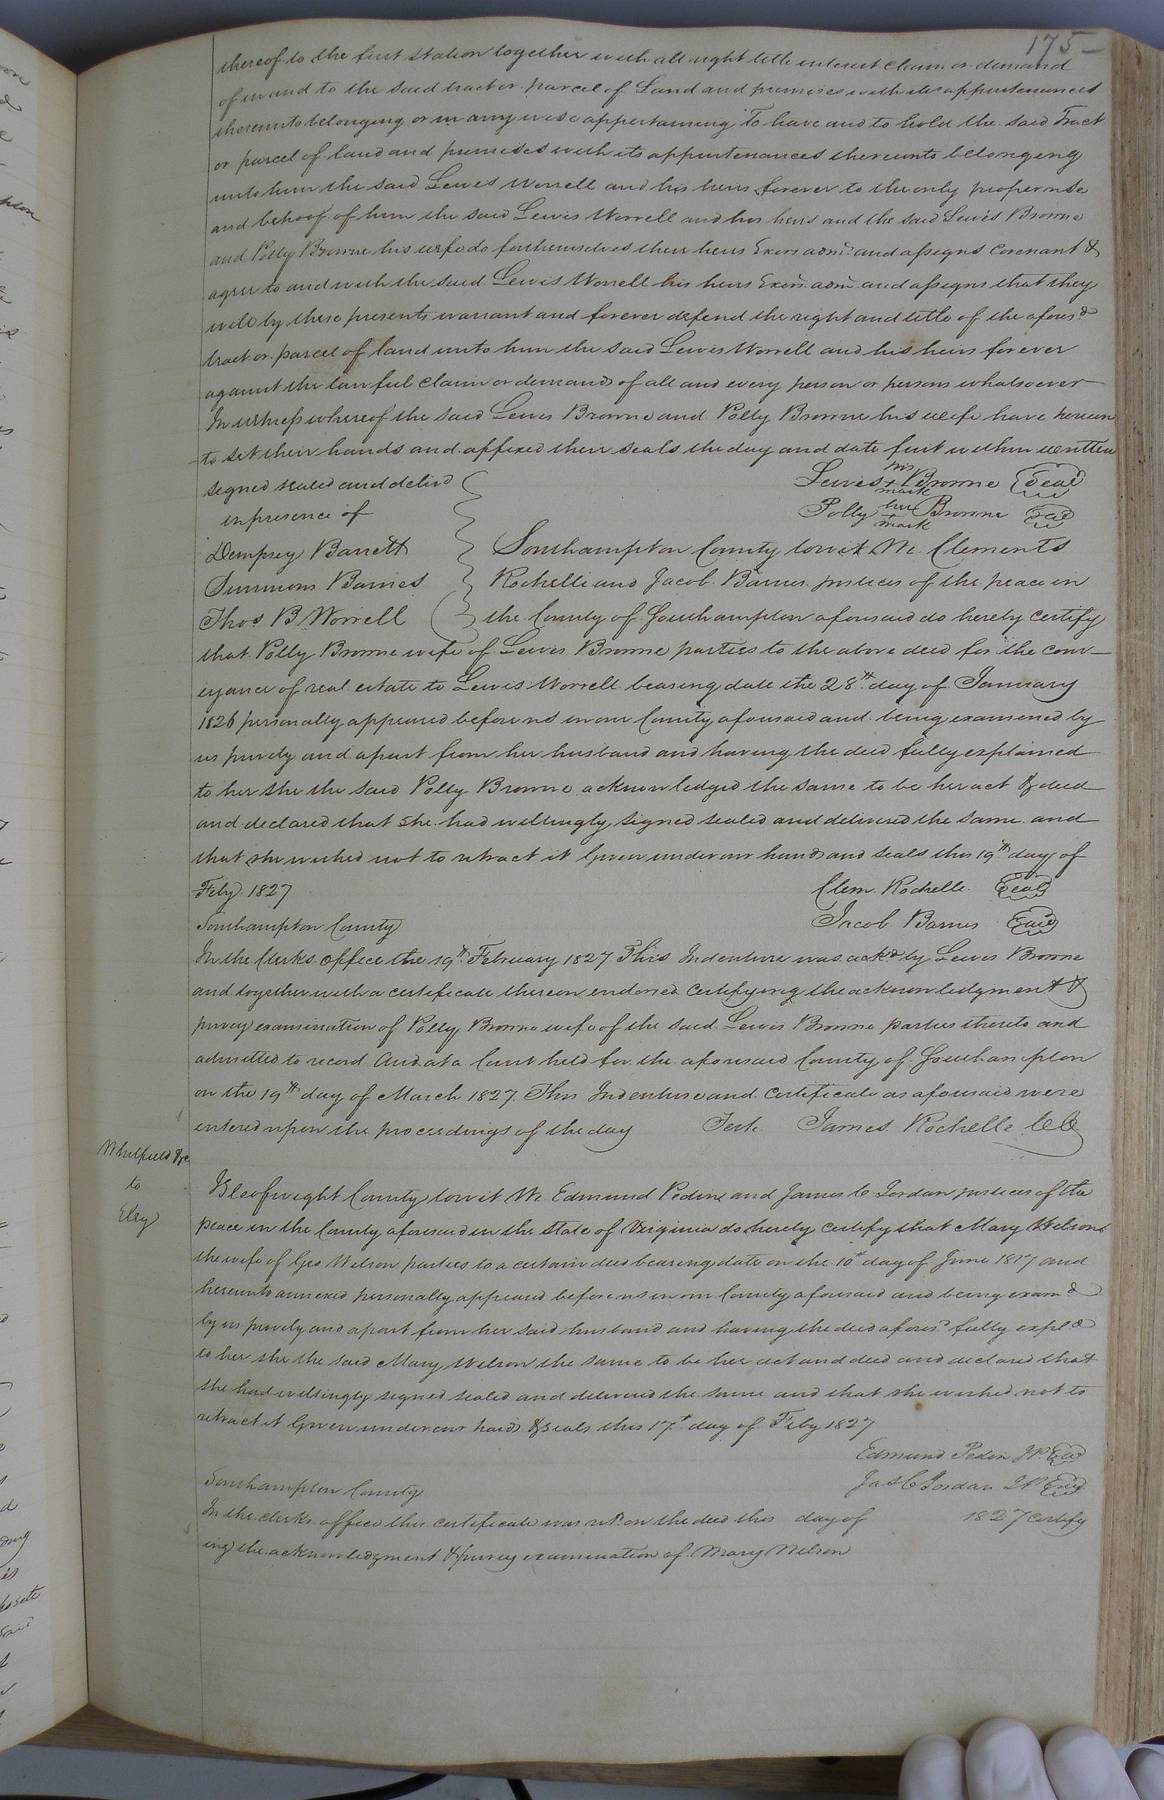 175
thereof to the first station together with all right title interest claim or demand
of in and to the said tract or parcel of Land and premises with its appurtenances
thereunto belonging or in any wise appertaining To have and to hold the said Tract
or parcel of land and premises with its appurtenances thereunto belonging
unto him the said Lewis Worrell and his heirs forever to the only proper use
and behoof of him the said Lewis Worrell and his heirs and the said Lewis Browne
and Polly Browne his wife do for themselves their heirs Exors adm.s and assigns covenant &
agree to and with the said Lewis Worrell his heirs Exors. adm.s and assigns that they
will by these presents warrant and forever defend the right and title of the afores.d
tract or parcel of land unto him the said Lewis Worrell and his heirs forever
against the lawful claim or demands of all and every person or persons whatsoever
In witness whereof the said Lewis Browne and Polly Browne his wife have hereun
to set their hands and affixed their seals the day and date first within written
Signed sealed and deliv.d
in presence of
Lewis his + mark Browne Seal
Polly her + mark Browne Seal
Dempsey Barrett
Simmons Barnes
Thos B. Worrell
Southampton County towit We Clements
Rochelle and Jacob Barnes justices of the peace in
the County of Southampton aforesaid do hereby certify
that Polly Browne wife of Lewis Browne parties to the above deed for the conv-
eyance of real estate to Lewis Worrell bearing date the 28th day of January
1826 personally appeared before us in our County aforesaid and being examened by
us privily and apart from her husband and having the deed fully explained
to her she the said Polly Browne acknowledged the same to be her act & deed
and declared that she had willingly signed sealed and delivered the same and
that she wished not to retract it Given under our hands and seals this 19th day of
Feby. 1827
Clem. Rochelle Seal
Jacob Barnes Seal
Southampton County
In the Clerks Office the 19th February 1827 This Indenture was ack.d by Lewis Browne
and together with a certificate thereon endorsed certifying the acknowledgment &
privey examination of Polly Browne wife of the said Lewis Browne parties thereto and
admitted to record And at a Court held for the aforesaid County of Southampton
on the 19th day of March 1827. This Indenture and certificate as aforesaid were
entered upon the proceedings of the day
Teste. James Rochelle CC
Whitfield &c
to
Eley
Isle of wight County towit We Edmund Peden and James C Jordan justices of the
peace in the County aforesaid in the State of Virginia do hereby certify that Mary Wilson
the wife of Geo Wilson parties to a certain deed bearing date on the 10th day of June 1817 and
hereunto annexed personally appeared before us in our County aforesaid and being exam.d
by us privily and apart from her said husband and having the deed afores.d fully expl.d
to her she the said Mary Wilson the same to be her act and deed and declared that
she had willingly signed sealed and delivered the same and that she wished not to
retract it Given under our hands & seals this 17th day of Feby 1827
Edmund Peden JP. Seal
Jas C Jordan JP Seal
Southampton County
In the clerks office this certificate was ret. on the deed this day of 1827 certify
ing the acknowledgment & privey examination of Mary Wilson